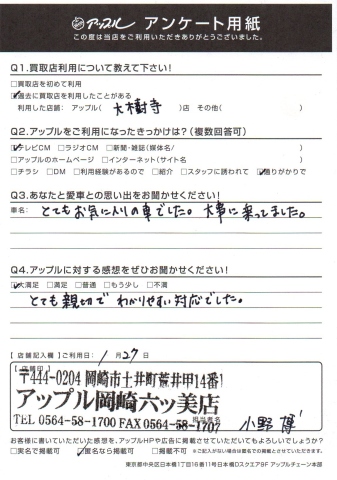 アップル アンケート用紙
この度は当店をご利用いただきありがとうございました。
Q1.買取店利用について教えて下さい!
□買取店を初めて利用
☑過去に買取店を利用したことがある
利用した店舗: アップル( 大樹寺 )店 その他( )
Q2.アップルをご利用になったきっかけは?(複数回答可)
☑テレビCM □ラジオCM □新聞・雑誌(媒体名/ )
□アップルのホームページ □インターネット(サイト名 )
□チラシ □DM □利用経験があるので □紹介 □スタッフに誘われて ☑通りがかりで
Q3.あなたと愛車との思い出をお聞かせください!
車名: とてもお気に入りの車でした。大事に乗ってました。
Q4.アップルに対する感想をぜひお聞かせください!
☑大満足 □満足 □普通 □もう少し □不満
とても親切でわかりやすい対応でした。
【店舗記入欄】ご利用日: 1月27日
【店舗印】
〒444-0204 岡崎市土井町荒井甲14番1
アップル岡崎六ッ美店
TEL 0564-58-1700 FAX 0564-58-1707
担当者名
小野 博
お客様に書いていただいた感想を、アップルHPや広告に掲載させていただいてもよろしいでしょうか?
□実名で掲載可 ☑匿名なら掲載可 □掲載不可 ※ご記入がない場合は匿名での掲載とさせていただきます。
東京都中央区日本橋1丁目16番11号日本橋Dスクエア9F アップルチェーン本部